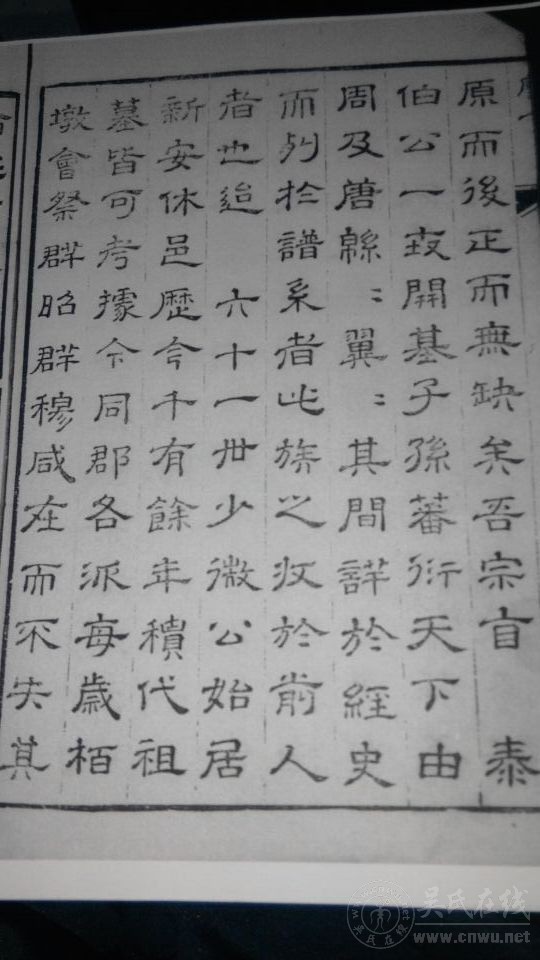 原而後正而無缺矣吾宗自　泰
伯公一支開基子孫蕃衍天下由
周及唐緜〻翼〻其間詳於經史
而列於譜系者此族之收於前人
者也迨　六十一世少微公始居
新安休邑歷今千有餘年積代祖
墓皆可考據今同郡各派每歲栢
墩會祭群昭群穆咸在而不失其
吴氏在线
www.cnwu.net